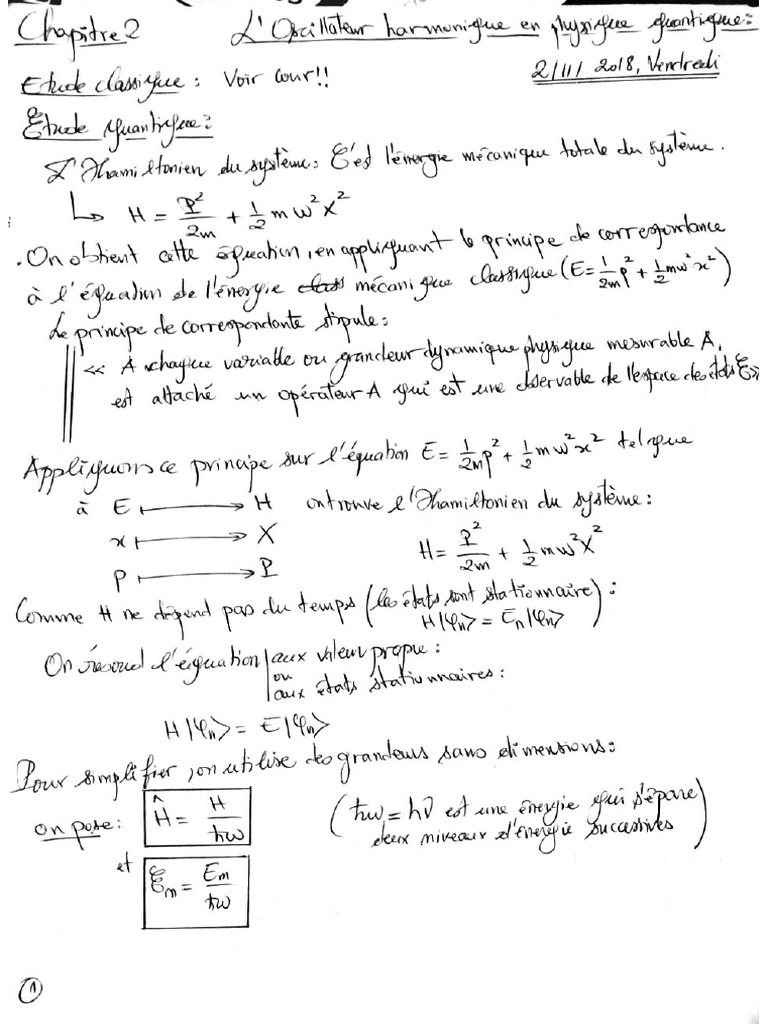 Chapitre 2 L'Oscillateur harmonique en physique quantique:
Etude classique : Voir cour!! 2/11/2018, Vendredi
Etude quantique:
L'Hamiltonien du système: C'est l'énergie mécanique totale du système.
↳ H = P²/2m + 1/2 m ω² X²
. On obtient cette équation, en appliquant le principe de correspondance
à l'équation de l'énergie mécanique classique (E = 1/2m p² + 1/2 m ω² x²)
Le principe de correspondante stipule:
<< A chaque variable ou grandeur dynamique physique mesurable A,
est attaché un opérateur A qui est une observable de l'espace des états ℰ >>
Appliquons ce principe sur l'équation E = 1/2m p² + 1/2 m ω² x² tel que
à E ⟼ H on trouve l'Hamiltonien du système:
x ⟼ X H = P²/2m + 1/2 m ω² X²
p ⟼ P
Comme H ne dépend pas du temps (les états sont stationnaire) :
H|φn> = En|φn>
On résoud l'équation aux valeur propre :
ou
aux états stationnaires :
H|φn> = E|φn>
Pour simplifier, on utilise des grandeurs sans dimensions:
on pose: Ĥ = H/ħω (ħω = hν est une énergie qui sépare
deux niveaux d'énergie successives)
et ℰm = Em/ħω
1